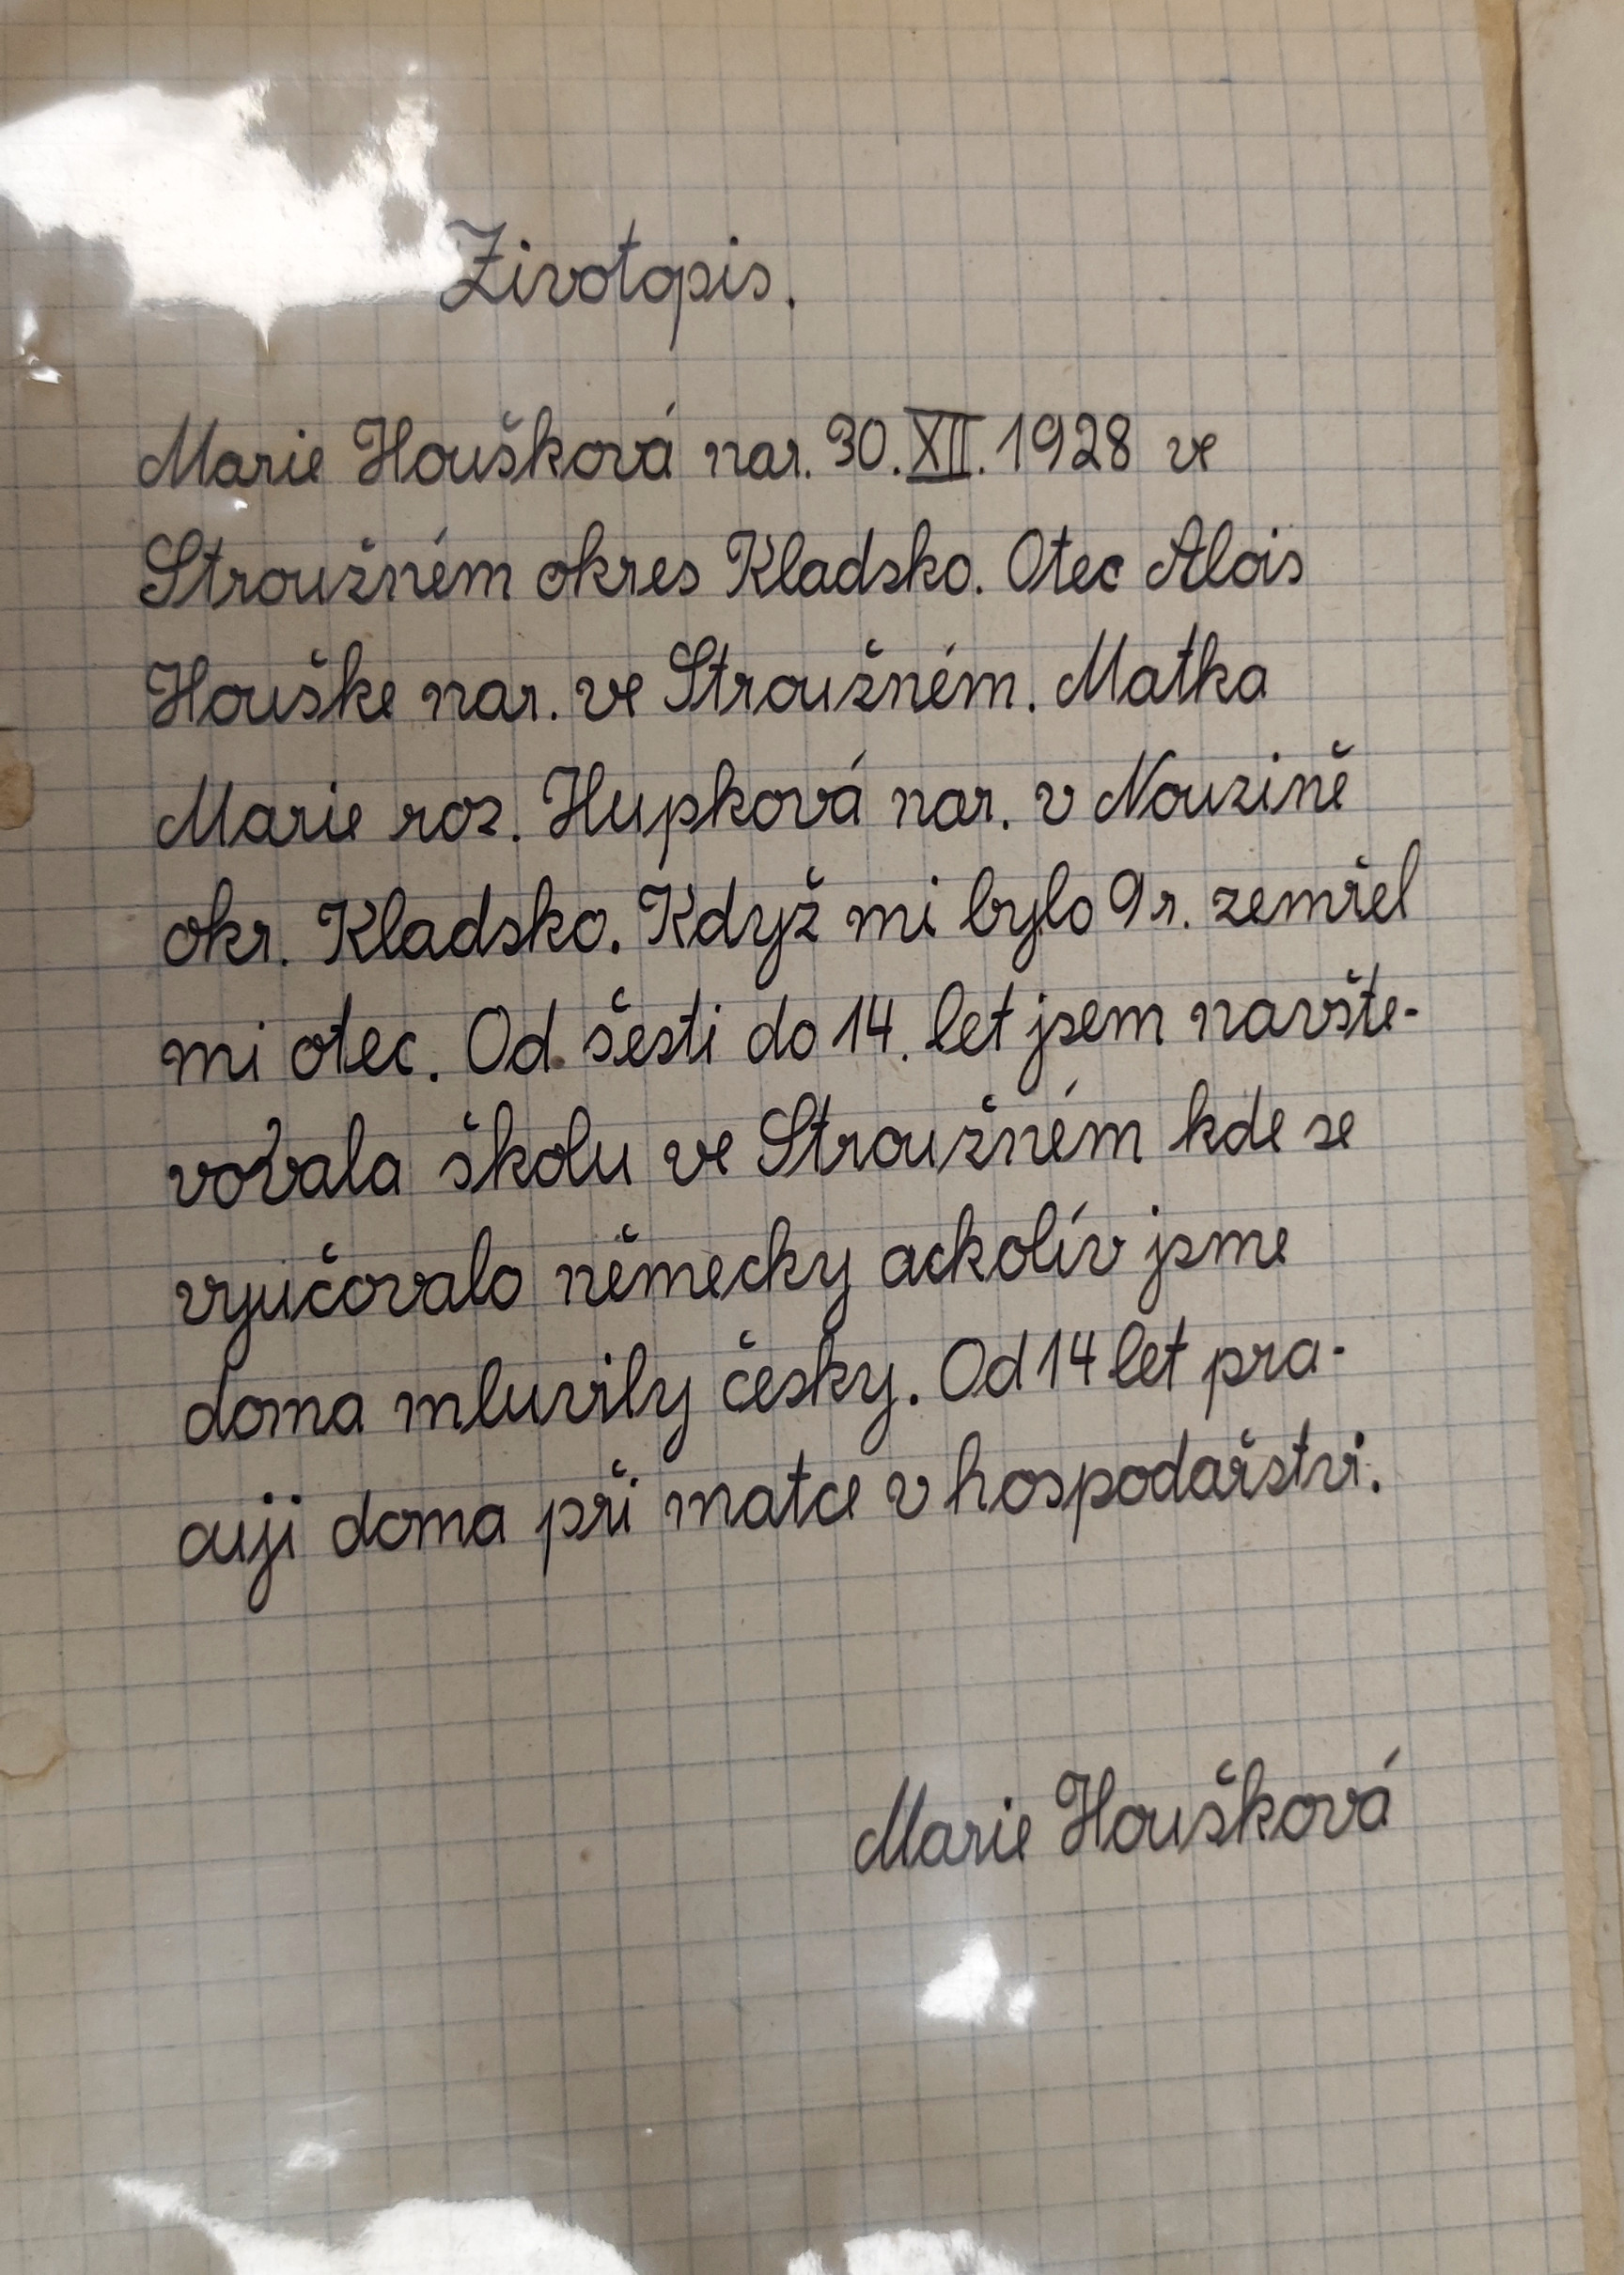 Životopis.
Marie Houšková nar. 30. XII. 1928 ve
Stroužném okres Kladsko. Otec Alois
Houške nar. ve Stroužném. Matka
Marie roz. Hupková nar. v Nouzině
okr. Kladsko. Když mi bylo 9 r. zemřel
mi otec. Od šesti do 14. let jsem navšte-
vovala školu ve Stroužném kde se
vyučovalo německy ackolív jsme
doma mluvily česky. Od 14 let pra-
cuji doma při matce v hospodařstvi.
Marie Houšková